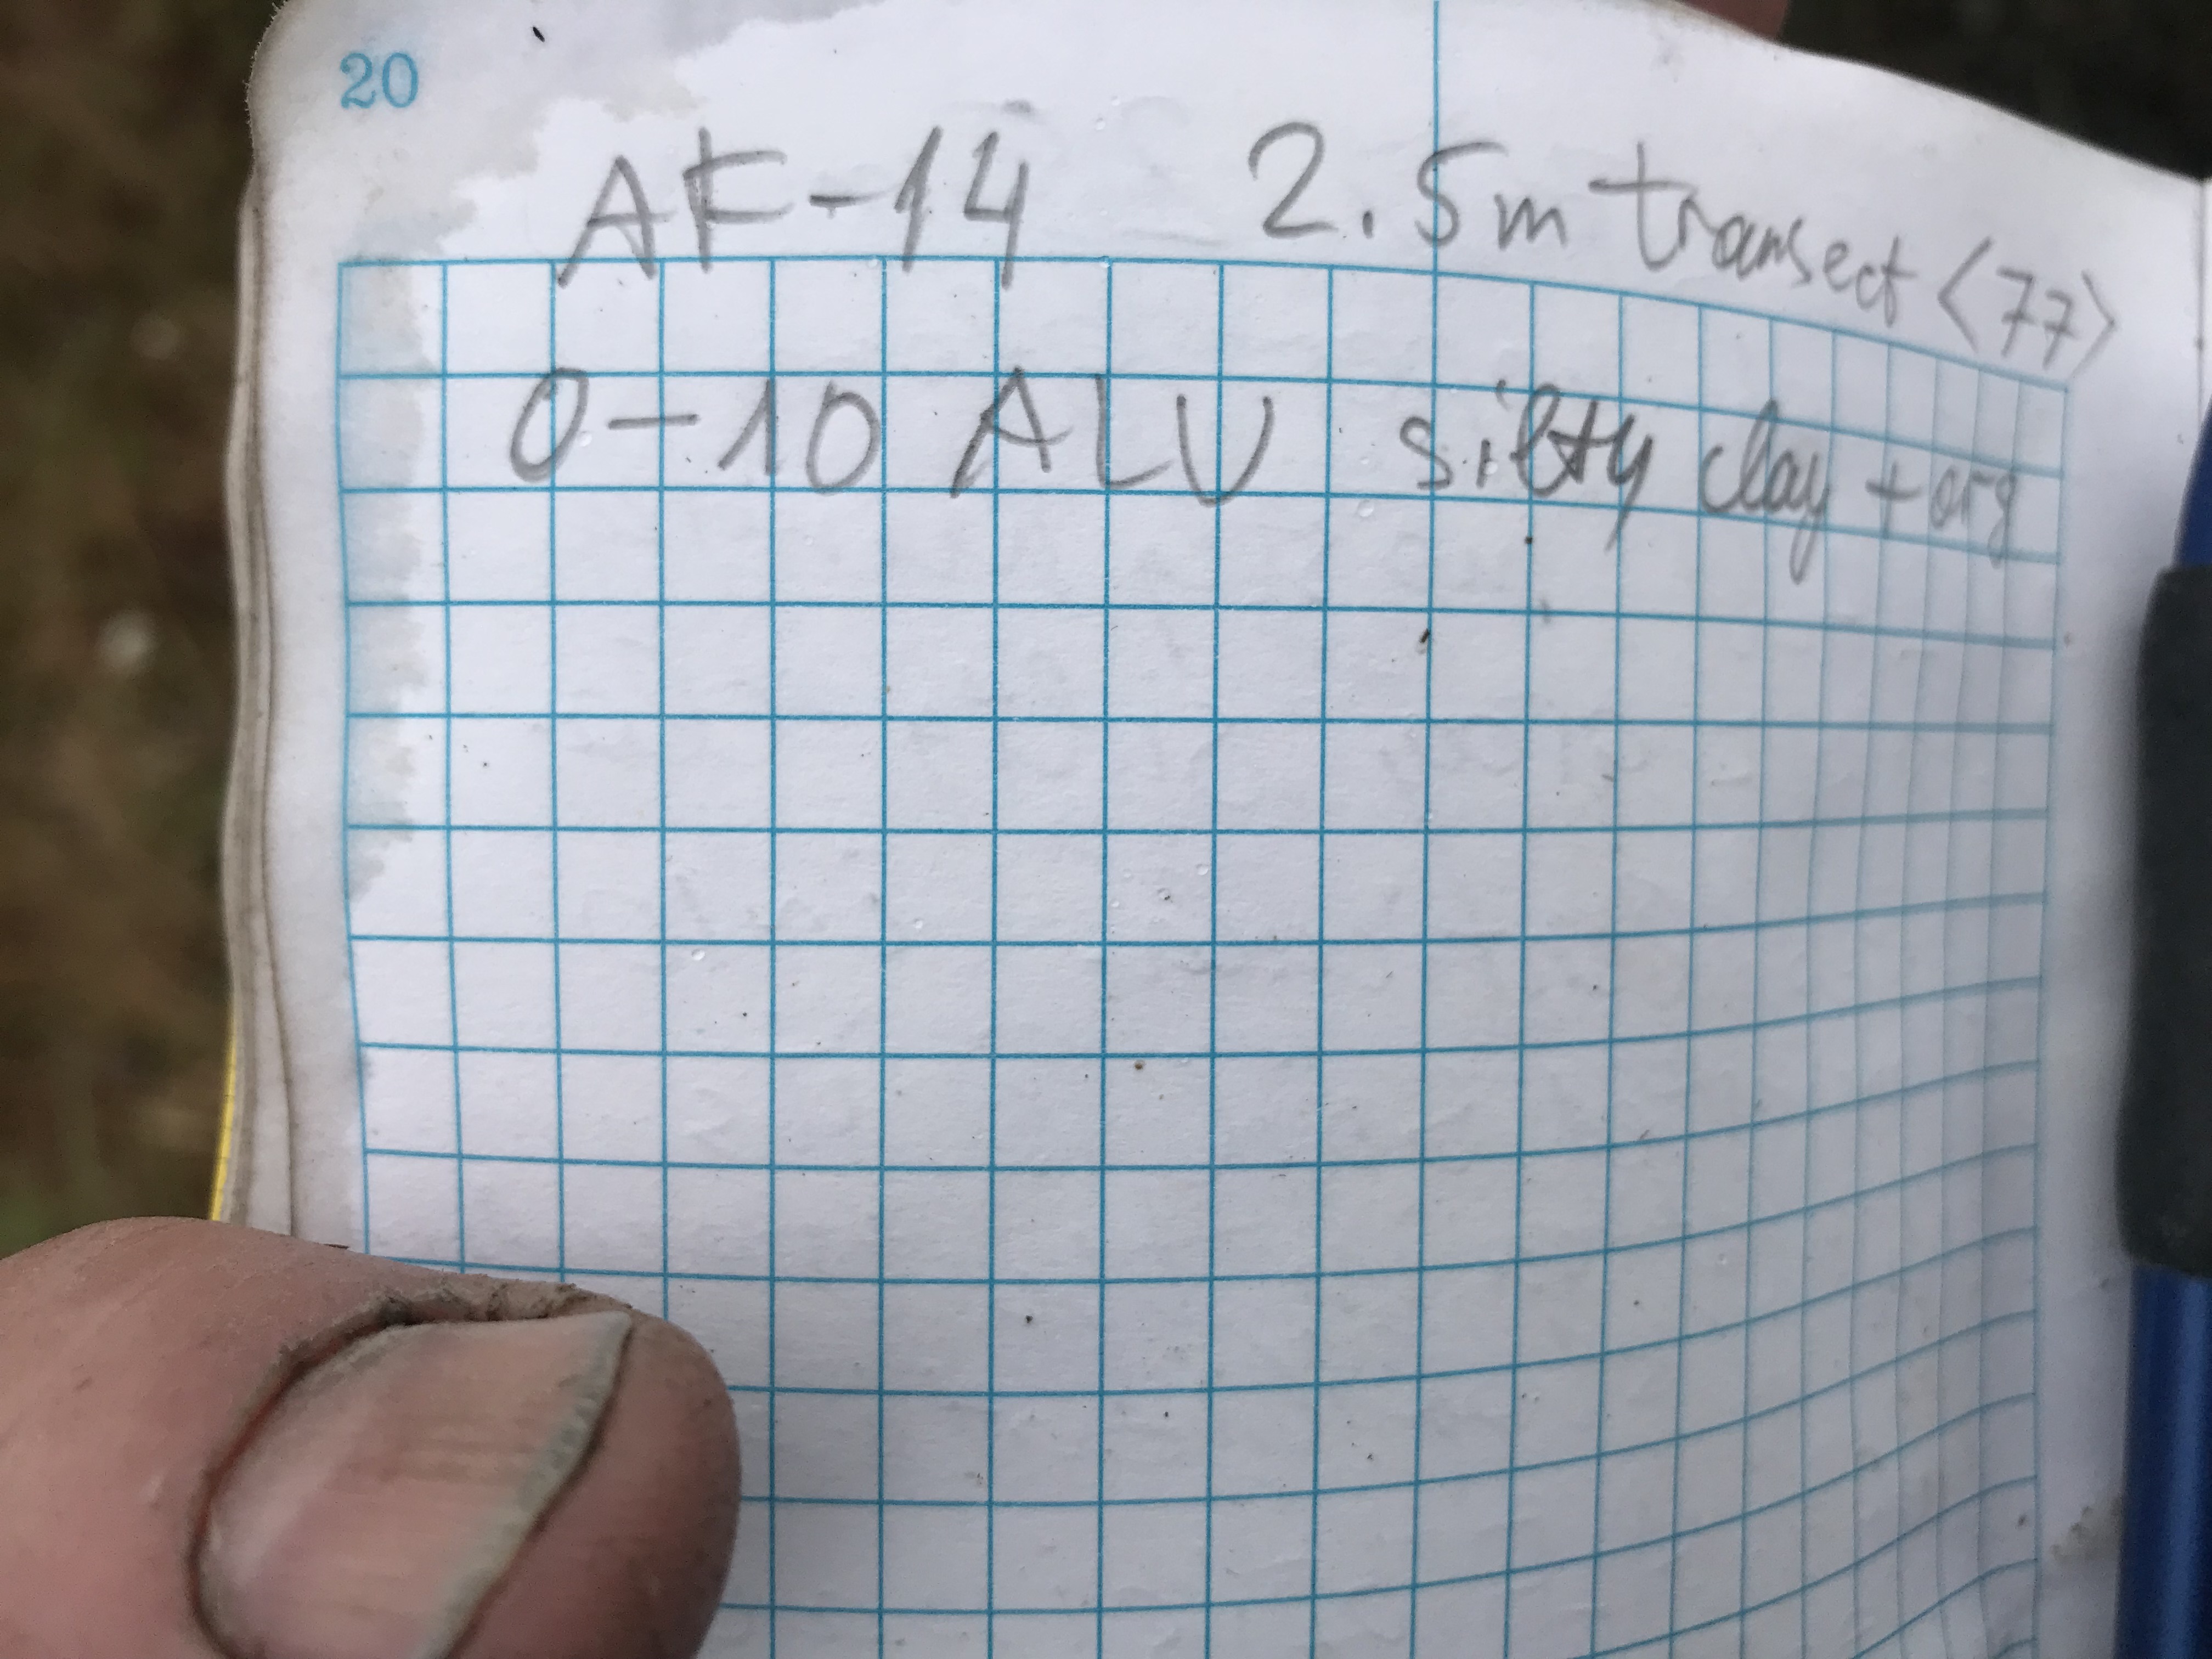 20
AF-14 2.5m transect <77>
0-10 ALU silty clay + org